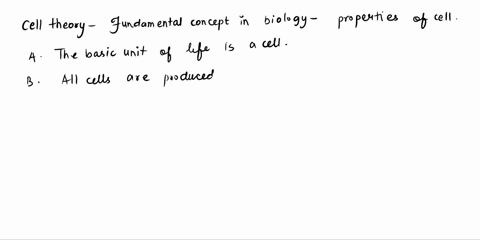 Cell theory - Fundamental concept in biology - properties of cell.
A. The basic unit of life is a cell.
B. All cells are produced